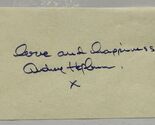 love and happiness
Audrey Hepburn.
x